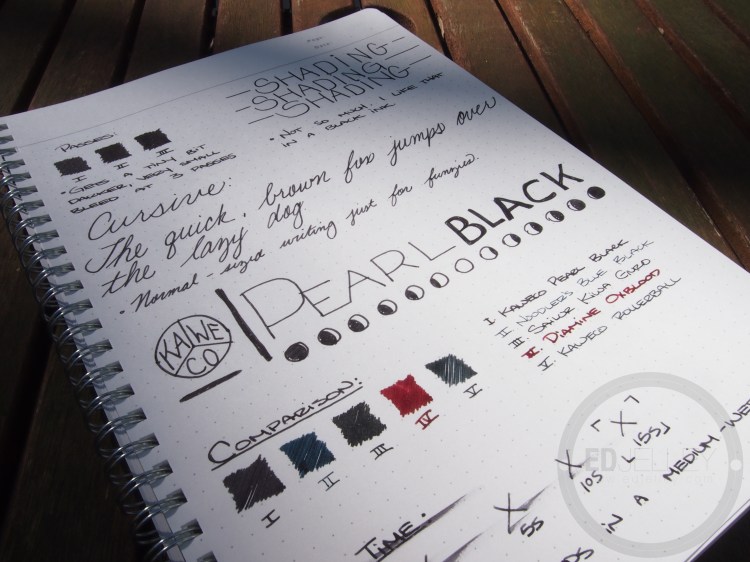 SHADING
SHADING
SHADING
• NOT SO MUCH, I LIKE THAT
IN A BLACK INK
PASSES:
I II III
• GETS A TINY BIT
DARKER, VERY SMALL
BLEED AT 3 PASSES
Cursive:
The quick, brown fox jumps over
the lazy dog
• Normal-sized writing just for funzies.
KAWE
CO
PEARL BLACK
I KAWECO PEARL BLACK
II NOODLER'S BLUE BLACK
III. SAILOR KIWA GURO
IV. DIAMINE OXBLOOD
V. KAWECO ROLLERBALL
COMPARISON:
I II III IV V
TIME.
X X "X"
5S 10S 15S
IN A MEDIUM-WET